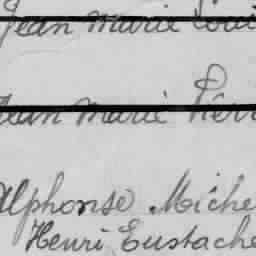 Jean Marie Loui
Jean Marie Pierr
Alphonse Miche
Henri Eustache